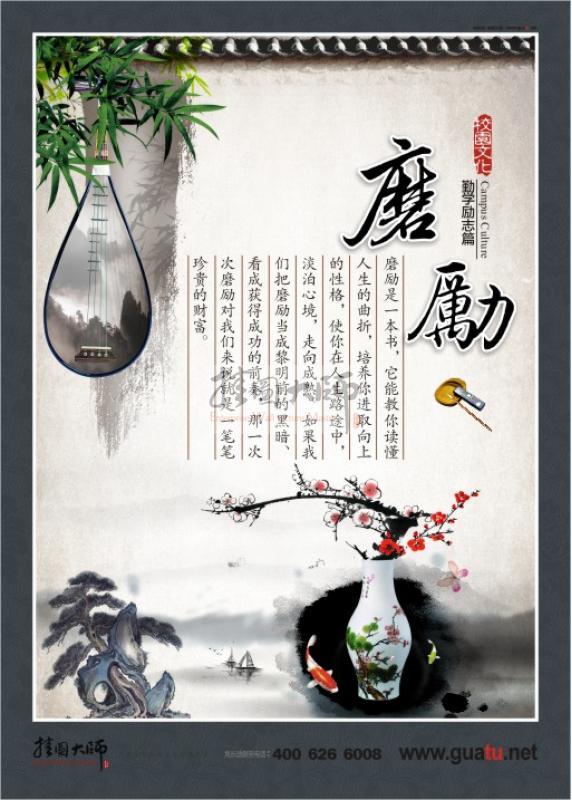 校園文化
Campus Culture
勤学励志篇
磨
勵
磨励是一本书，它能教你读懂
人生的曲折，培养你进取向上
的性格，使你在人生路途中，
淡泊心境，走向成熟。如果我
们把磨励当成黎明前的黑暗、
看成获得成功的前奏，那一次
次磨励对我们来说就是一笔笔
珍贵的财富。
挂圖大师
挂圖大师
400 626 6008
www.guatu.net